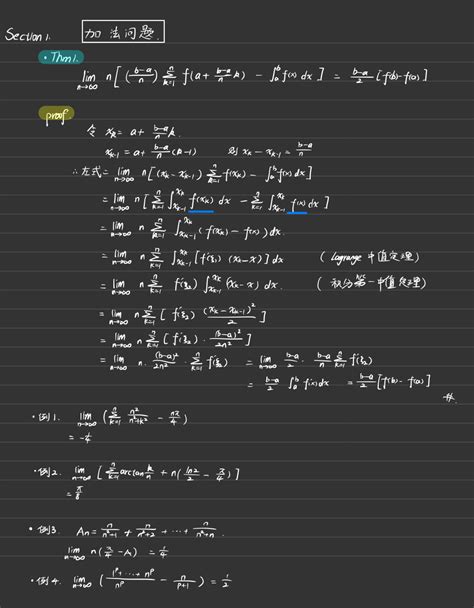 Section 1. 加法问题.
· Thm1.
lim_{n→∞} n[ (b-a/n) Σ_{k=1}^{n} f(a + (b-a)/n k) - ∫_a^b f(x) dx ] = (b-a)/2 [f(b)-f(a)]
proof.
令 x_k = a + (b-a)/n k.
x_{k-1} = a + (b-a)/n (k-1) 则 x_k - x_{k-1} = (b-a)/n
∴ 左式 = lim_{n→∞} n[(x_k - x_{k-1}) Σ_{k=1}^{n} f(x_k) - ∫_a^b f(x) dx]
= lim_{n→∞} n[ Σ_{k=1}^{n} ∫_{x_{k-1}}^{x_k} f(x_k) dx - Σ_{k=1}^{n} ∫_{x_{k-1}}^{x_k} f(x) dx ]
= lim_{n→∞} n Σ_{k=1}^{n} ∫_{x_{k-1}}^{x_k} (f(x_k) - f(x)) dx.
= lim_{n→∞} n Σ_{k=1}^{n} ∫_{x_{k-1}}^{x_k} [f'(ξ_1) (x_k - x)] dx (Lagrange 中值定理)
= lim_{n→∞} n Σ_{k=1}^{n} f'(ξ_2) ∫_{x_{k-1}}^{x_k} (x_k - x) dx (积分第一中值定理)
= lim_{n→∞} n Σ_{k=1}^{n} [ f'(ξ_2) (x_k - x_{k-1})²/2 ]
= lim_{n→∞} n Σ_{k=1}^{n} [ f'(ξ_2) · (b-a)²/2n² ]
= lim_{n→∞} n · (b-a)²/2n² · Σ_{k=1}^{n} f'(ξ_2) = lim_{n→∞} (b-a)/2 · (b-a)/n Σ_{k=1}^{n} f'(ξ_2)
= (b-a)/2 ∫_a^b f'(x) dx = (b-a)/2 [f(b) - f(a)]
#.
· 例1. lim_{n→∞} ( Σ_{k=1}^{n} n²/(n²+k²) - nπ/4 )
= -1/4
· 例2. lim_{n→∞} [ Σ_{k=1}^{n} arctan k/n + n( ln2/2 - π/4 ) ]
= π/8
· 例3. An = n/(n²+1) + n/(n²+2²) + ··· + n/(n²+n²)
lim_{n→∞} n(π/4 - A) = 1/4
· 例4. lim_{n→∞} ( (1^p + ··· + n^p)/n^p - n/(p+1) ) = 1/2